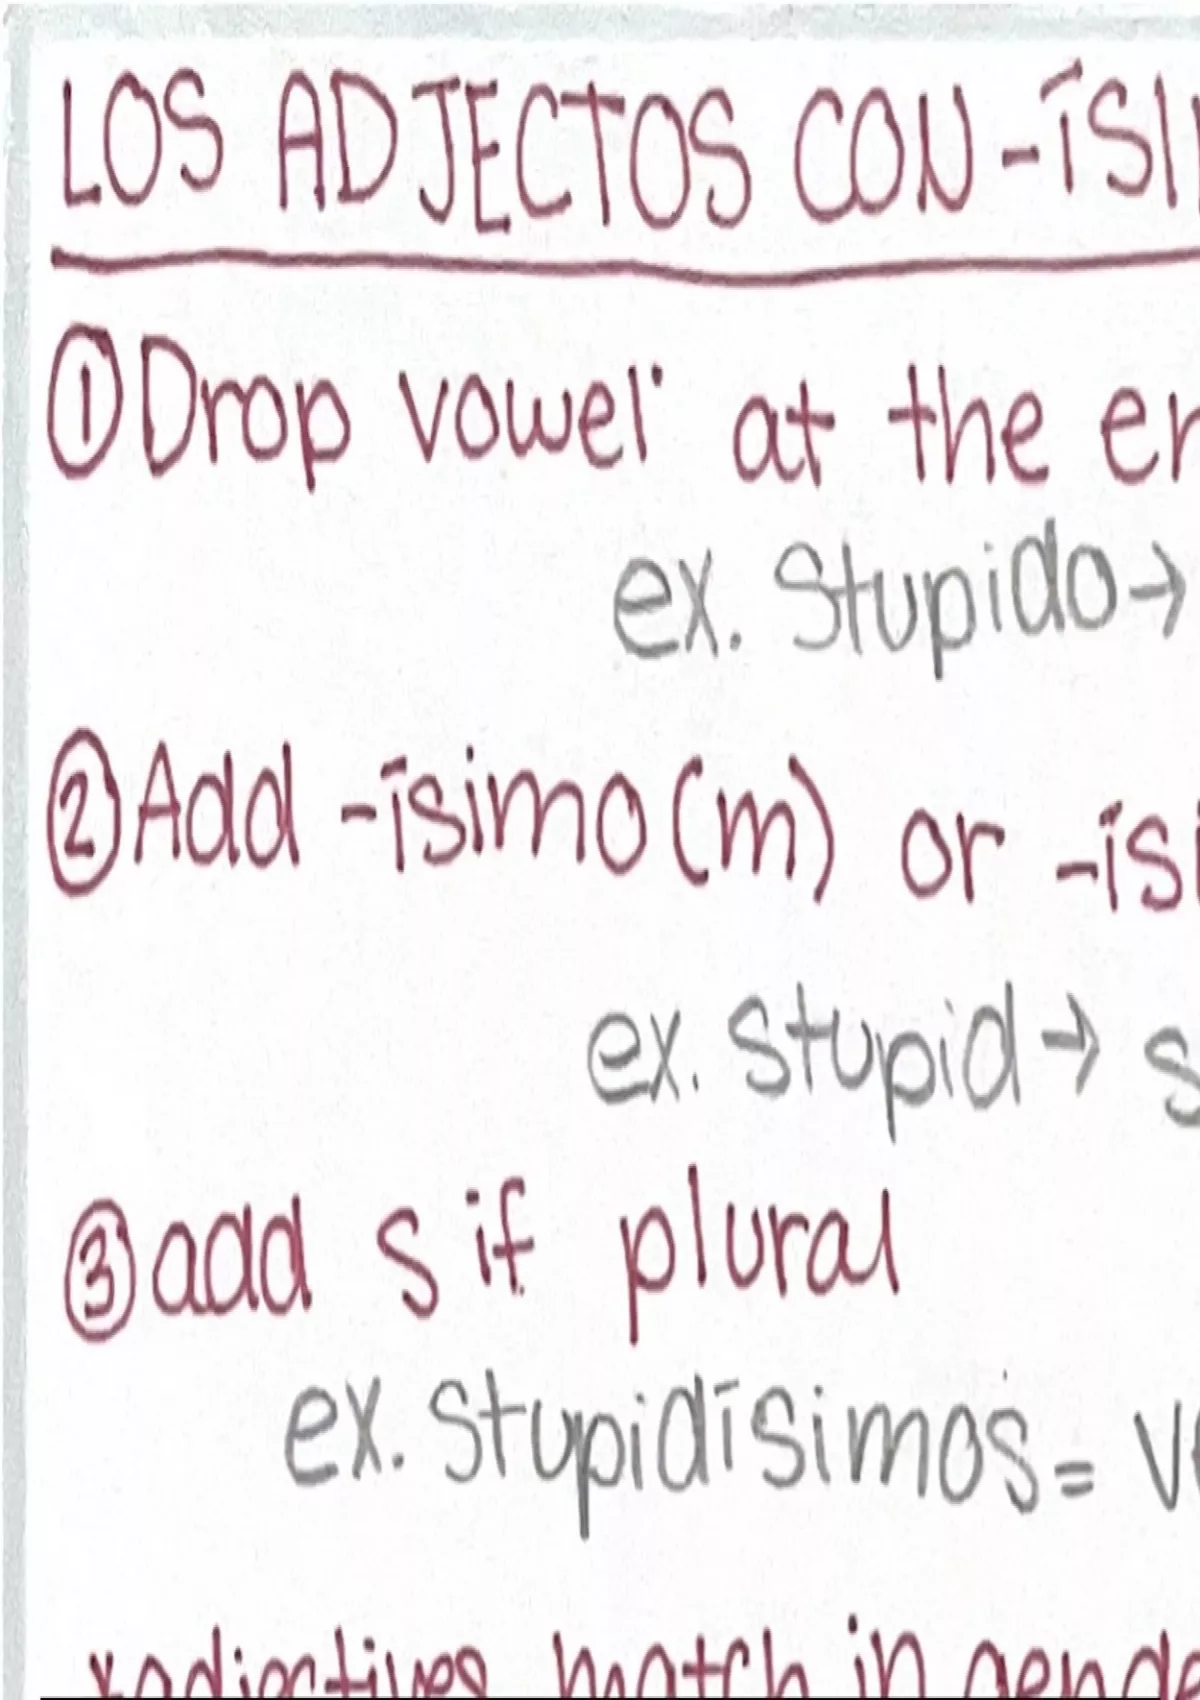 LOS ADJECTOS CON -ÍSI
① Drop vowel at the
ex. Stupido →
② Add -ísimo (m) or -ísi
ex. stupid → s
③ add s if plural
ex. stupidísimos =
*adjectives match in